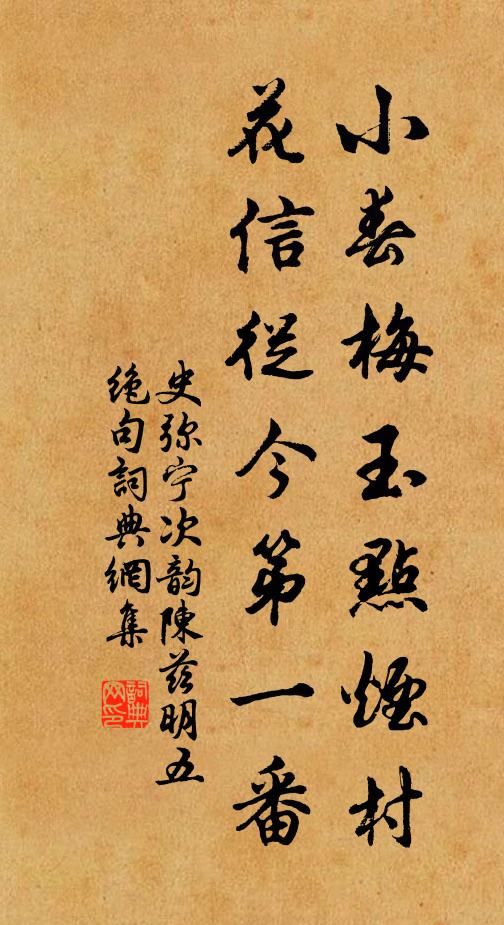 小春梅玉點煙村
花信從今第一番
史弥宁次韵陳茲明五
絕句詞典網集
詞典
网印